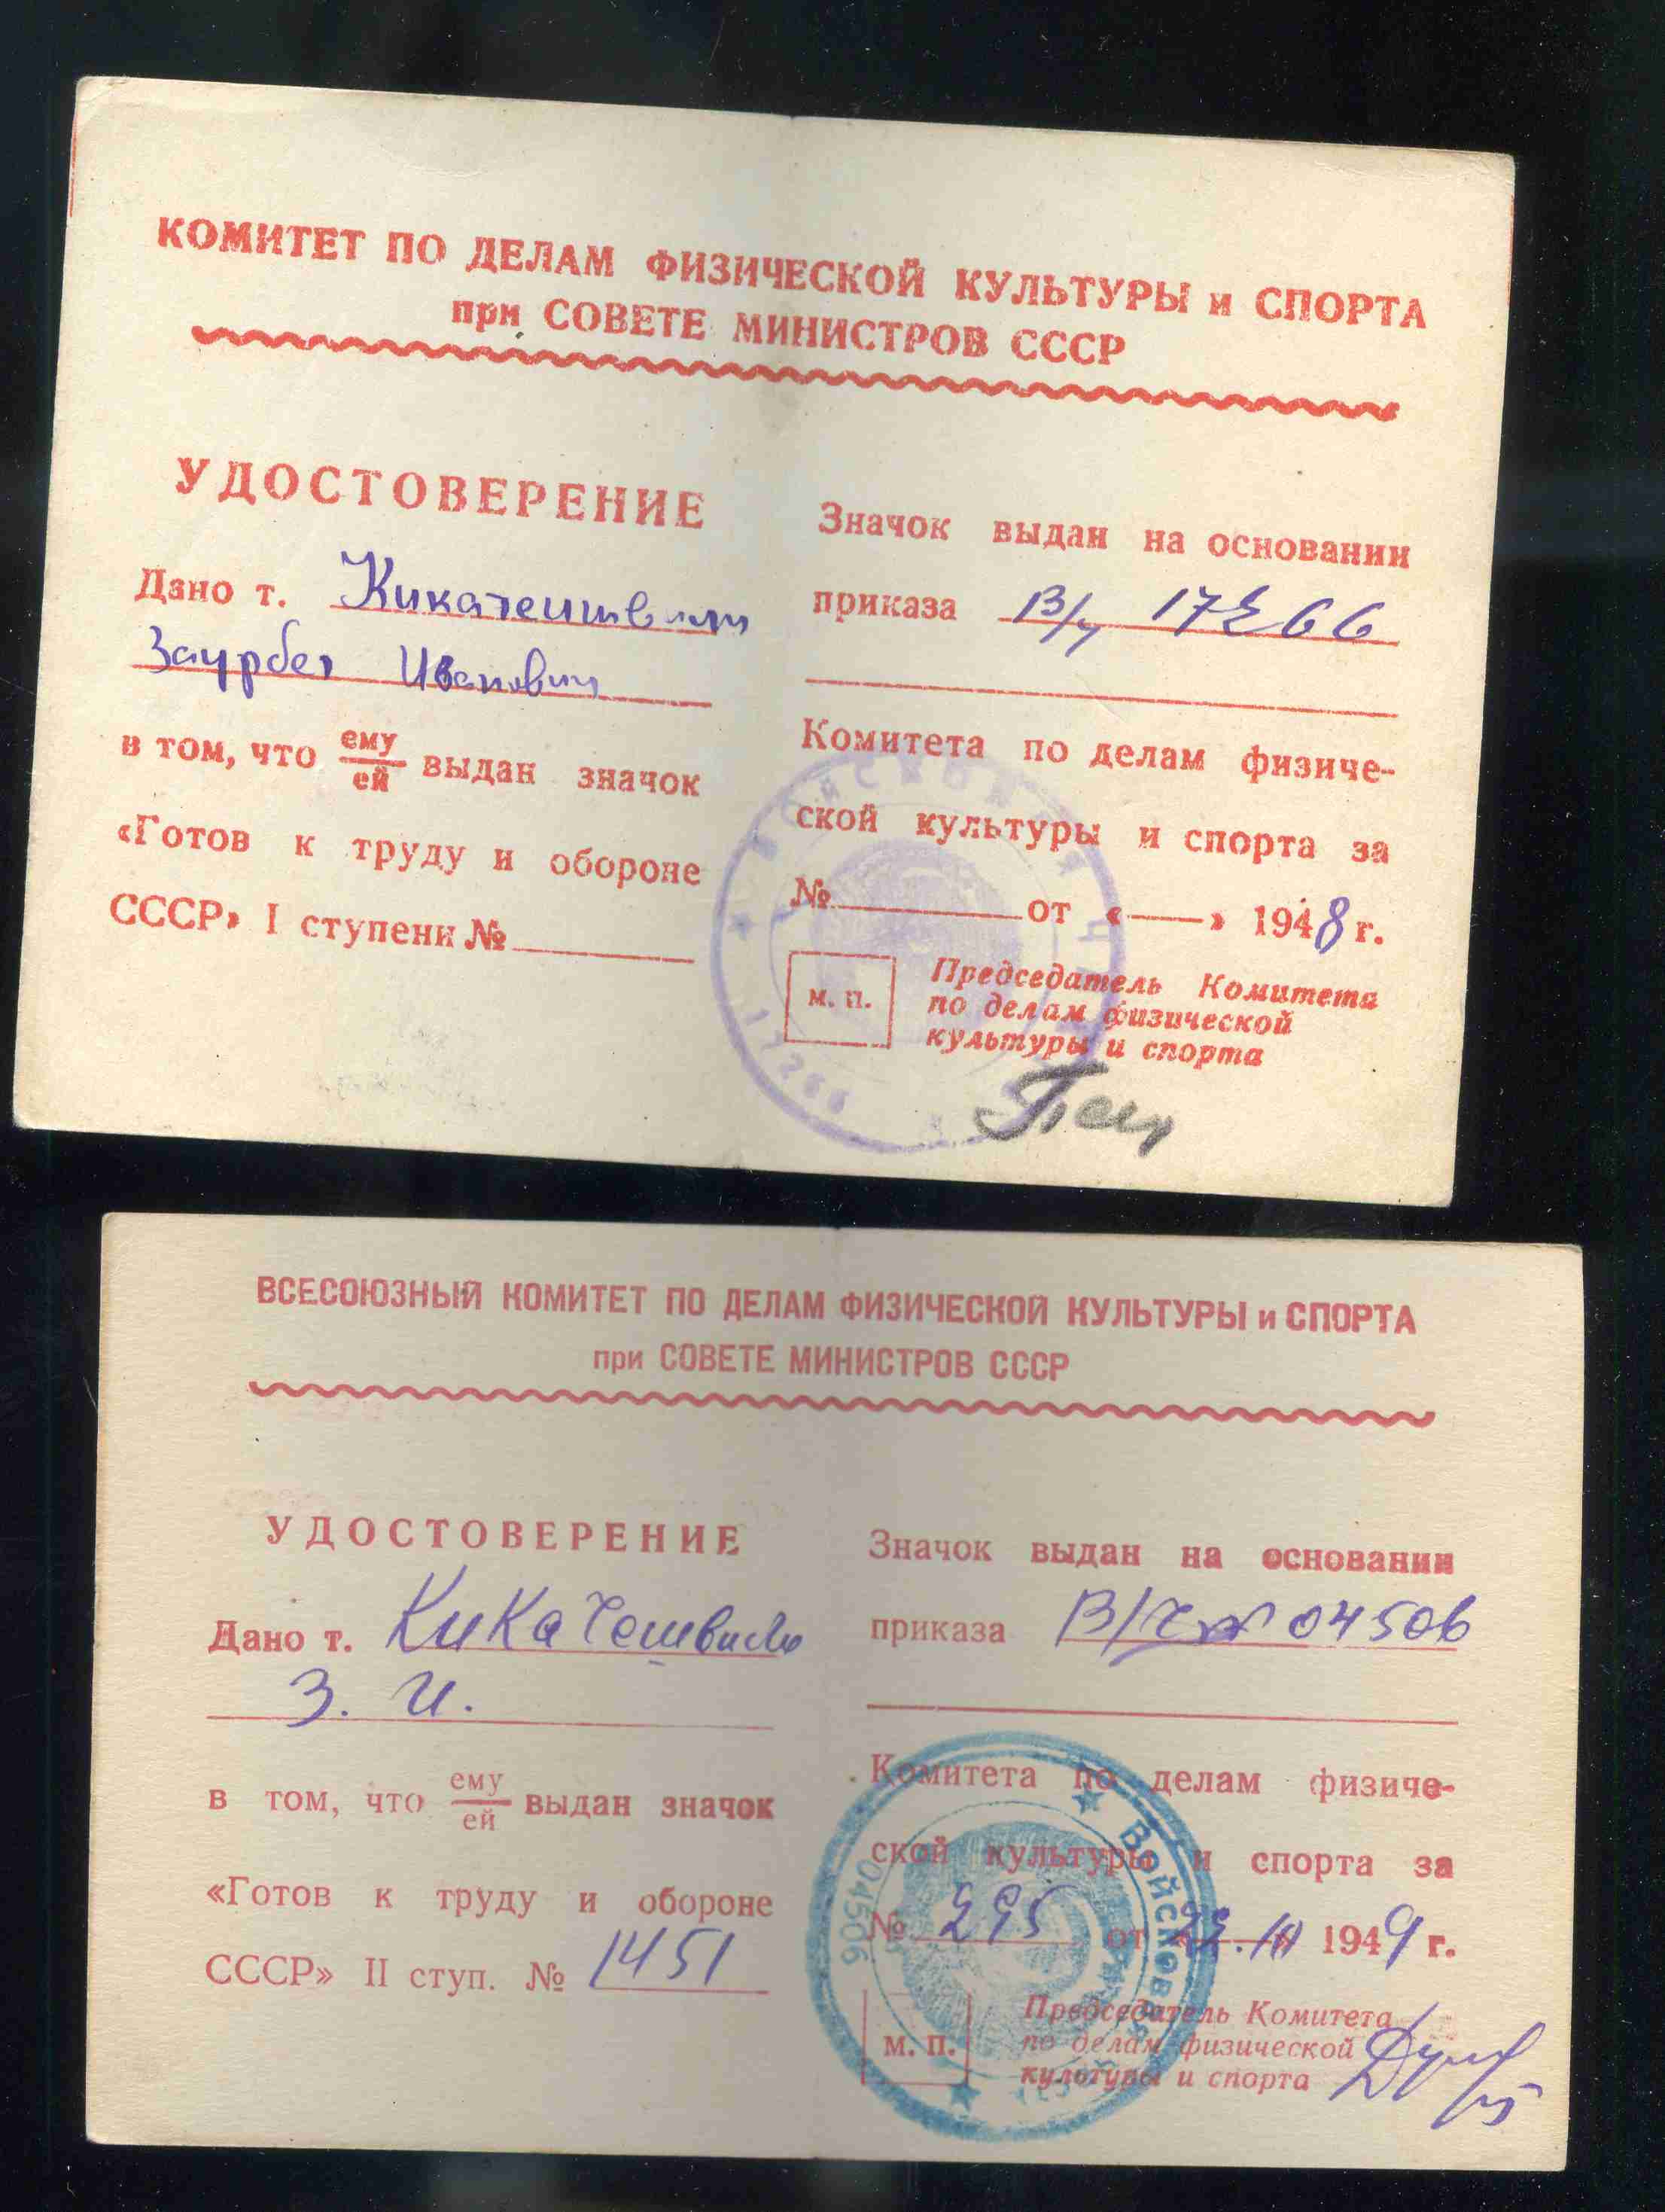 КОМИТЕТ ПО ДЕЛАМ ФИЗИЧЕСКОЙ КУЛЬТУРЫ и СПОРТА
при СОВЕТЕ МИНИСТРОВ СССР
УДОСТОВЕРЕНИЕ
Дано т. Кикатешвили
Заурбек Иванович
в том, что ему
ей выдан значок
«Готов к труду и обороне
СССР» I ступени №
Значок выдан на основании
приказа В/ч 17266
Комитета по делам физиче-
ской культуры и спорта за
№ от « — » 1948 г.
м. п.
Председатель Комитета
по делам физической
культуры и спорта
ВОЙСКОВАЯ Ч
17266
ВСЕСОЮЗНЫЙ КОМИТЕТ ПО ДЕЛАМ ФИЗИЧЕСКОЙ КУЛЬТУРЫ и СПОРТА
при СОВЕТЕ МИНИСТРОВ СССР
УДОСТОВЕРЕНИЕ
Дано т. Кикатешвили
З. И.
в том, что ему
ей выдан значок
«Готов к труду и обороне
СССР» II ступ. № 1451
Значок выдан на основании
приказа В/ч № 04506
Комитета по делам физиче-
ской культуры и спорта за
№ 295 от 1949 г.
м. п.
Председатель Комитета
по делам физической
культуры и спорта
Войсковая
04506